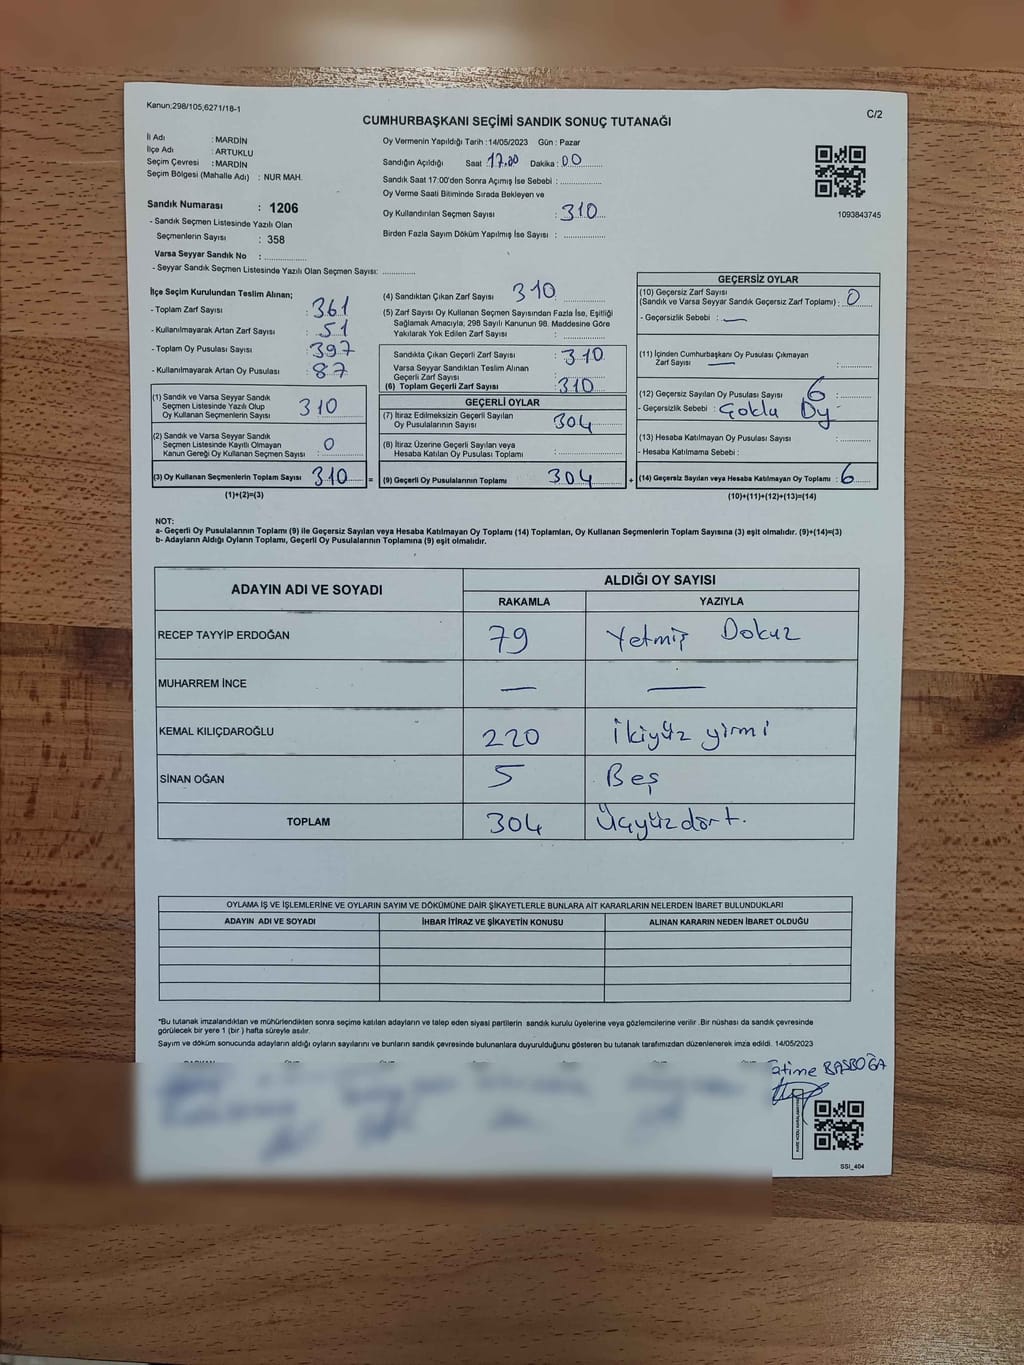 Kanun;298/105,6271/18-1
CUMHURBAŞKANI SEÇİMİ SANDIK SONUÇ TUTANAĞI
C/2
İl Adı : MARDİN
İlçe Adı : ARTUKLU
Seçim Çevresi : MARDİN
Seçim Bölgesi (Mahalle Adı) : NUR MAH.
Sandık Numarası : 1206
- Sandık Seçmen Listesinde Yazılı Olan
Seçmenlerin Sayısı : 358
Varsa Seyyar Sandık No : ..............
- Seyyar Sandık Seçmen Listesinde Yazılı Olan Seçmen Sayısı: ............
Oy Vermenin Yapıldığı Tarih :14/05/2023 Gün : Pazar
Sandığın Açıldığı Saat :17.00 Dakika : 00
Sandık Saat 17:00'den Sonra Açımış İse Sebebi : ..............
Oy Verme Saati Bitiminde Sırada Bekleyen ve
Oy Kullandırılan Seçmen Sayısı : 310
Birden Fazla Sayım Döküm Yapılmış İse Sayısı : ..............
1093843745
İlçe Seçim Kurulundan Teslim Alınan;
- Toplam Zarf Sayısı : 361
- Kullanılmayarak Artan Zarf Sayısı : 51
- Toplam Oy Pusulası Sayısı : 397
- Kullanılmayarak Artan Oy Pusulası : 87
(1) Sandık ve Varsa Seyyar Sandık
Seçmen Listesinde Yazılı Olup
Oy Kullanan Seçmenlerin Sayısı 310
(2) Sandık ve Varsa Seyyar Sandık
Seçmen Listesinde Kayıtlı Olmayan
Kanun Gereği Oy Kullanan Seçmen Sayısı : 0
(3) Oy Kullanan Seçmenlerin Toplam Sayısı 310 =
(1)+(2)=(3)
(4) Sandıktan Çıkan Zarf Sayısı 310
(5) Zarf Sayısı Oy Kullanan Seçmen Sayısından Fazla İse, Eşitliği
Sağlamak Amacıyla; 298 Sayılı Kanunun 98. Maddesine Göre
Yakılarak Yok Edilen Zarf Sayısı : ..............
Sandıkta Çıkan Geçerli Zarf Sayısı : 310
Varsa Seyyar Sandıktan Teslim Alınan
Geçerli Zarf Sayısı : ..............
(6) Toplam Geçerli Zarf Sayısı 310
GEÇERLİ OYLAR
(7) İtiraz Edilmeksizin Geçerli Sayılan
Oy Pusulalarının Sayısı 304
(8) İtiraz Üzerine Geçerli Sayılan veya
Hesaba Katılan Oy Pusulası Toplamı : ..............
(9) Geçerli Oy Pusulalarının Toplamı 304 +
GEÇERSİZ OYLAR
(10) Geçersiz Zarf Sayısı
(Sandık ve Varsa Seyyar Sandık Geçersiz Zarf Toplamı) : 0
- Geçersizlik Sebebi : —
(11) İçinden Cumhurbaşkanı Oy Pusulası Çıkmayan
Zarf Sayısı —
(12) Geçersiz Sayılan Oy Pusulası Sayısı 6
- Geçersizlik Sebebi : Çoklu Oy
(13) Hesaba Katılmayan Oy Pusulası Sayısı : ..........
- Hesaba Katılmama Sebebi :
(14) Geçersiz Sayılan veya Hesaba Katılmayan Oy Toplamı : 6
(10)+(11)+(12)+(13)=(14)
NOT:
a- Geçerli Oy Pusulalarının Toplamı (9) ile Geçersiz Sayılan veya Hesaba Katılmayan Oy Toplamı (14) Toplamları, Oy Kullanan Seçmenlerin Toplam Sayısına (3) eşit olmalıdır. (9)+(14)=(3)
b- Adayların Aldığı Oyların Toplamı, Geçerli Oy Pusulalarının Toplamına (9) eşit olmalıdır.
ADAYIN ADI VE SOYADI ALDIĞI OY SAYISI
RAKAMLA YAZIYLA
RECEP TAYYİP ERDOĞAN 79 Yetmiş Dokuz
MUHARREM İNCE — —
KEMAL KILIÇDAROĞLU 220 ikiyüz yirmi
SİNAN OĞAN 5 Beş
TOPLAM 304 Üçyüzdört.
OYLAMA İŞ VE İŞLEMLERİNE VE OYLARIN SAYIM VE DÖKÜMÜNE DAİR ŞİKAYETLERLE BUNLARA AİT KARARLARIN NELERDEN İBARET BULUNDUKLARI
ADAYIN ADI VE SOYADI İHBAR İTİRAZ VE ŞİKAYETİN KONUSU ALINAN KARARIN NEDEN İBARET OLDUĞU
*Bu tutanak imzalandıktan ve mühürlendikten sonra seçime katılan adayların ve talep eden siyasi partilerin sandık kurulu üyelerine veya gözlemcilerine verilir .Bir nüshası da sandık çevresinde
görülecek bir yere 1 (bir ) hafta süreyle asılır.
Sayım ve döküm sonucunda adayların aldığı oyların sayılarını ve bunların sandık çevresinde bulunanlara duyurulduğunu gösteren bu tutanak tarafımızdan düzenlenerek imza edildi. 14/05/2023
atime BAŞBOĞA
SSI_404